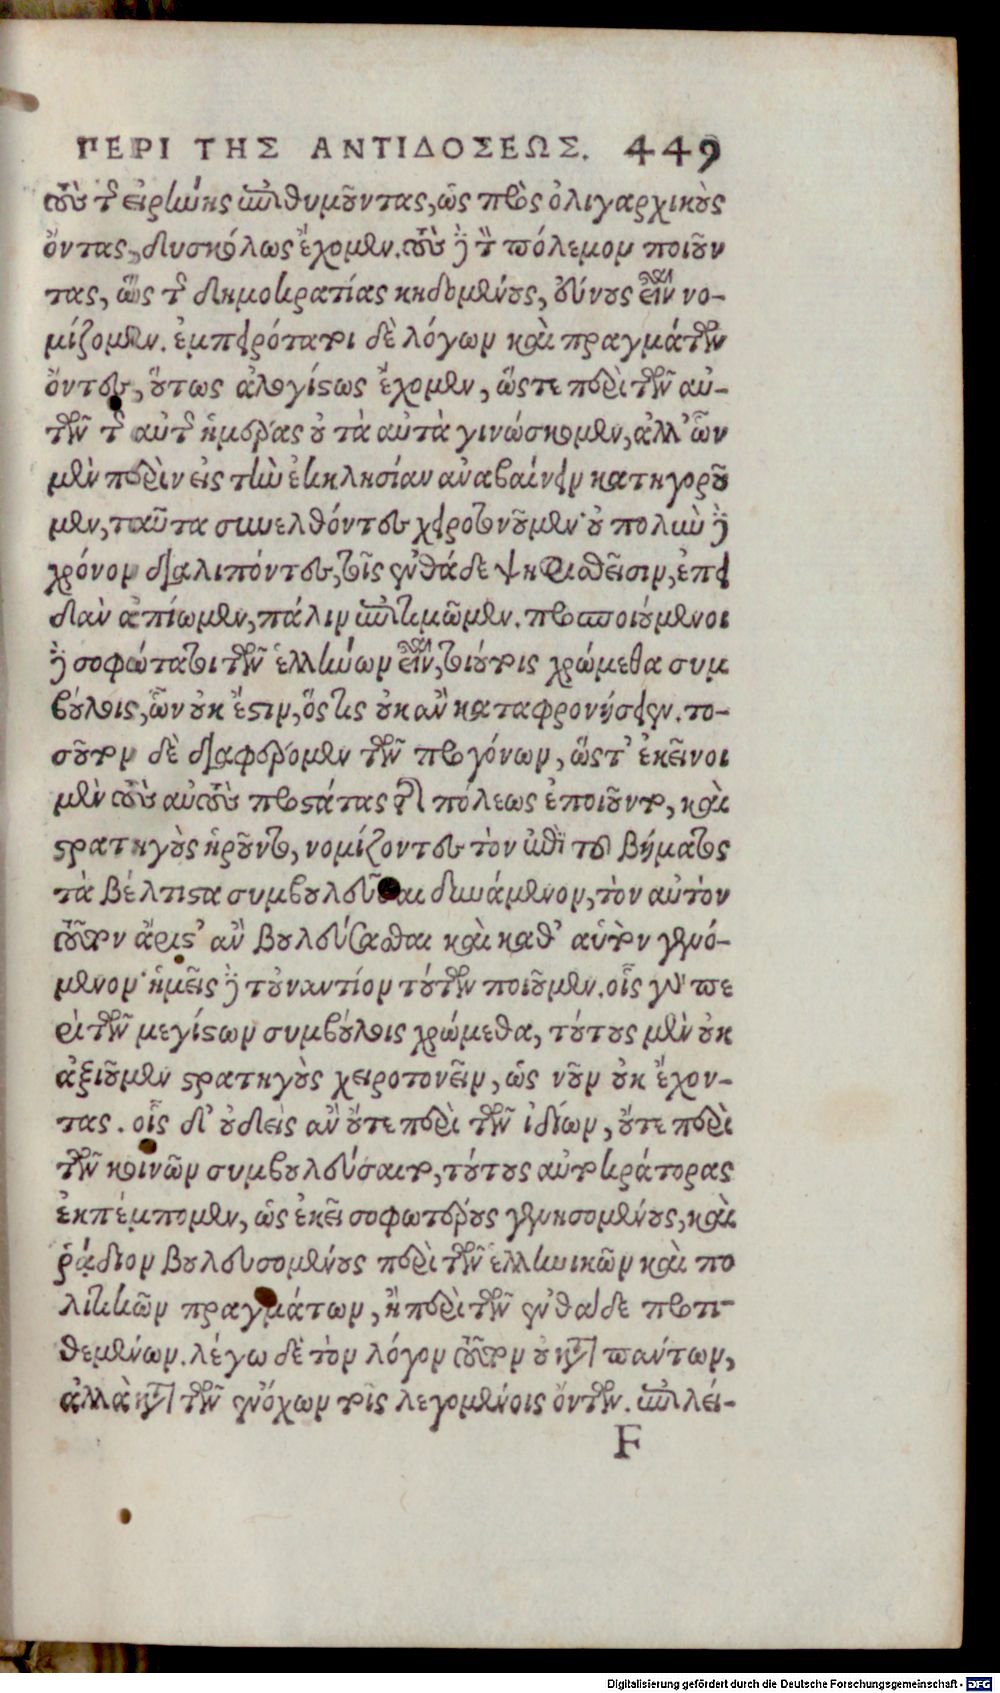 ΠΕΡΙ ΤΗΣ ΑΝΤΙΔΟΣΕΩΣ. 449
τοὺς τῆς εἰρήνης ἐπιθυμοῦντας, ὡς πρὸς ὀλιγαρχικοὺς
ὄντας, δυσκόλως ἔχομεν. τοὺς δὲ τὸν πόλεμον ποιοῦν
τας, ὡς τῆς δημοκρατίας κηδομένους, εὔνους εἶναι νο-
μίζομεν. ἐμπειρότατοι δὲ λόγων καὶ πραγμάτων
ὄντες, οὕτως ἀλογίστως ἔχομεν, ὥστε περὶ τῶν αὐ-
τῶν τῆς αὐτῆς ἡμέρας οὐ τὰ αὐτὰ γινώσκομεν, ἀλλ' ὧν
μὲν πρὶν εἰς τὴν ἐκκλησίαν ἀναβαίνειν κατηγοροῦ
μεν, ταῦτα συνελθόντες χειροτονοῦμεν· οὐ πολὺν δὲ
χρόνον διαλιπόντες, τοῖς ἐνθάδε ψηφισθεῖσιν, ἐπει
δὰν ἀπίωμεν, πάλιν ἐπιτιμῶμεν. προσποιούμενοι
δὲ σοφώτατοι τῶν ἑλλήνων εἶναι, τοιούτοις χρώμεθα συμ
βούλοις, ὧν οὐκ ἔστιν, ὅστις οὐκ ἂν καταφρονήσειεν. το-
σοῦτον δὲ διαφέρομεν τῶν προγόνων, ὥστ' ἐκεῖνοι
μὲν τοὺς αὐτοὺς προστάτας τῆς πόλεως ἐποιοῦντο, καὶ
στρατηγοὺς ἡροῦντο, νομίζοντες τὸν ἐπὶ τοῦ βήματος
τὰ βέλτιστα συμβουλεῦσαι δυνάμενον, τὸν αὐτὸν
τοῦτον ἄριστ' ἂν βουλεύσασθαι καὶ καθ' αὑτὸν γενό-
μενον· ἡμεῖς δὲ τοὐναντίον τούτων ποιοῦμεν. οἷς γὰρ πε
ρὶ τῶν μεγίστων συμβούλοις χρώμεθα, τούτους μὲν οὐκ
ἀξιοῦμεν στρατηγοὺς χειροτονεῖν, ὡς νοῦν οὐκ ἔχον-
τας. οἷς δ' οὐδεὶς ἂν οὔτε περὶ τῶν ἰδίων, οὔτε περὶ
τῶν κοινῶν συμβουλεύσαιτο, τούτους αὐτοκράτορας
ἐκπέμπομεν, ὡς ἐκεῖ σοφωτέρους γενησομένους, καὶ
ῥᾷδιον βουλευσομένους περὶ τῶν ἑλληνικῶν καὶ πο
λιτικῶν πραγμάτων, ἢ περὶ τῶν ἐνθάδε προτι-
θεμένων. λέγω δὲ τὸν λόγον τοῦτον οὐ κατὰ πάντων,
ἀλλὰ κατὰ τῶν ἐνόχων τοῖς λεγομένοις ὄντων. ἐπιλεί-
F
Digitalisierung gefördert durch die Deutsche Forschungsgemeinschaft - DFG